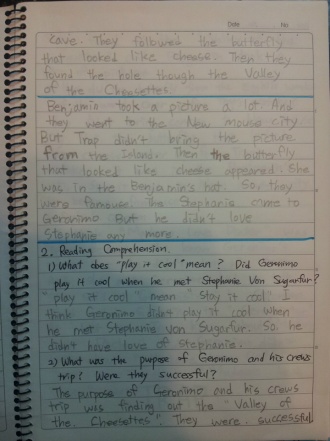 Date No
cave. They followed the butterfly
that looked like cheese. Then they
found the hole though the Valley
of the Cheesettes.
Benjamin took a picture a lot. And
they went to the New mouse city
But Trap didn't bring the picture
from the island. Then the butterfly
that looked like cheese appeared. She
was in the Benjamin's hat. So, they
were famouse. The Stephanie came to
Geronimo But he didn't love
Stephanie any more.
2. Reading Comprehension.
1) What does "play it cool" mean? Did Geronimo
play it cool when he met Stephanie Von Sugarfur?
"play it cool" mean "Stay it cool" I
think Geronimo didn't play it cool when
he met Stephanie von Sugarfur. So he
didn't have love of Stephanie.
2) What was the purpose of Geronimo and his crews
trip? Were they successful?
The purpose of Geronimo and his crews
trip was finding out the "Valley of
the Cheesettes". They were successful